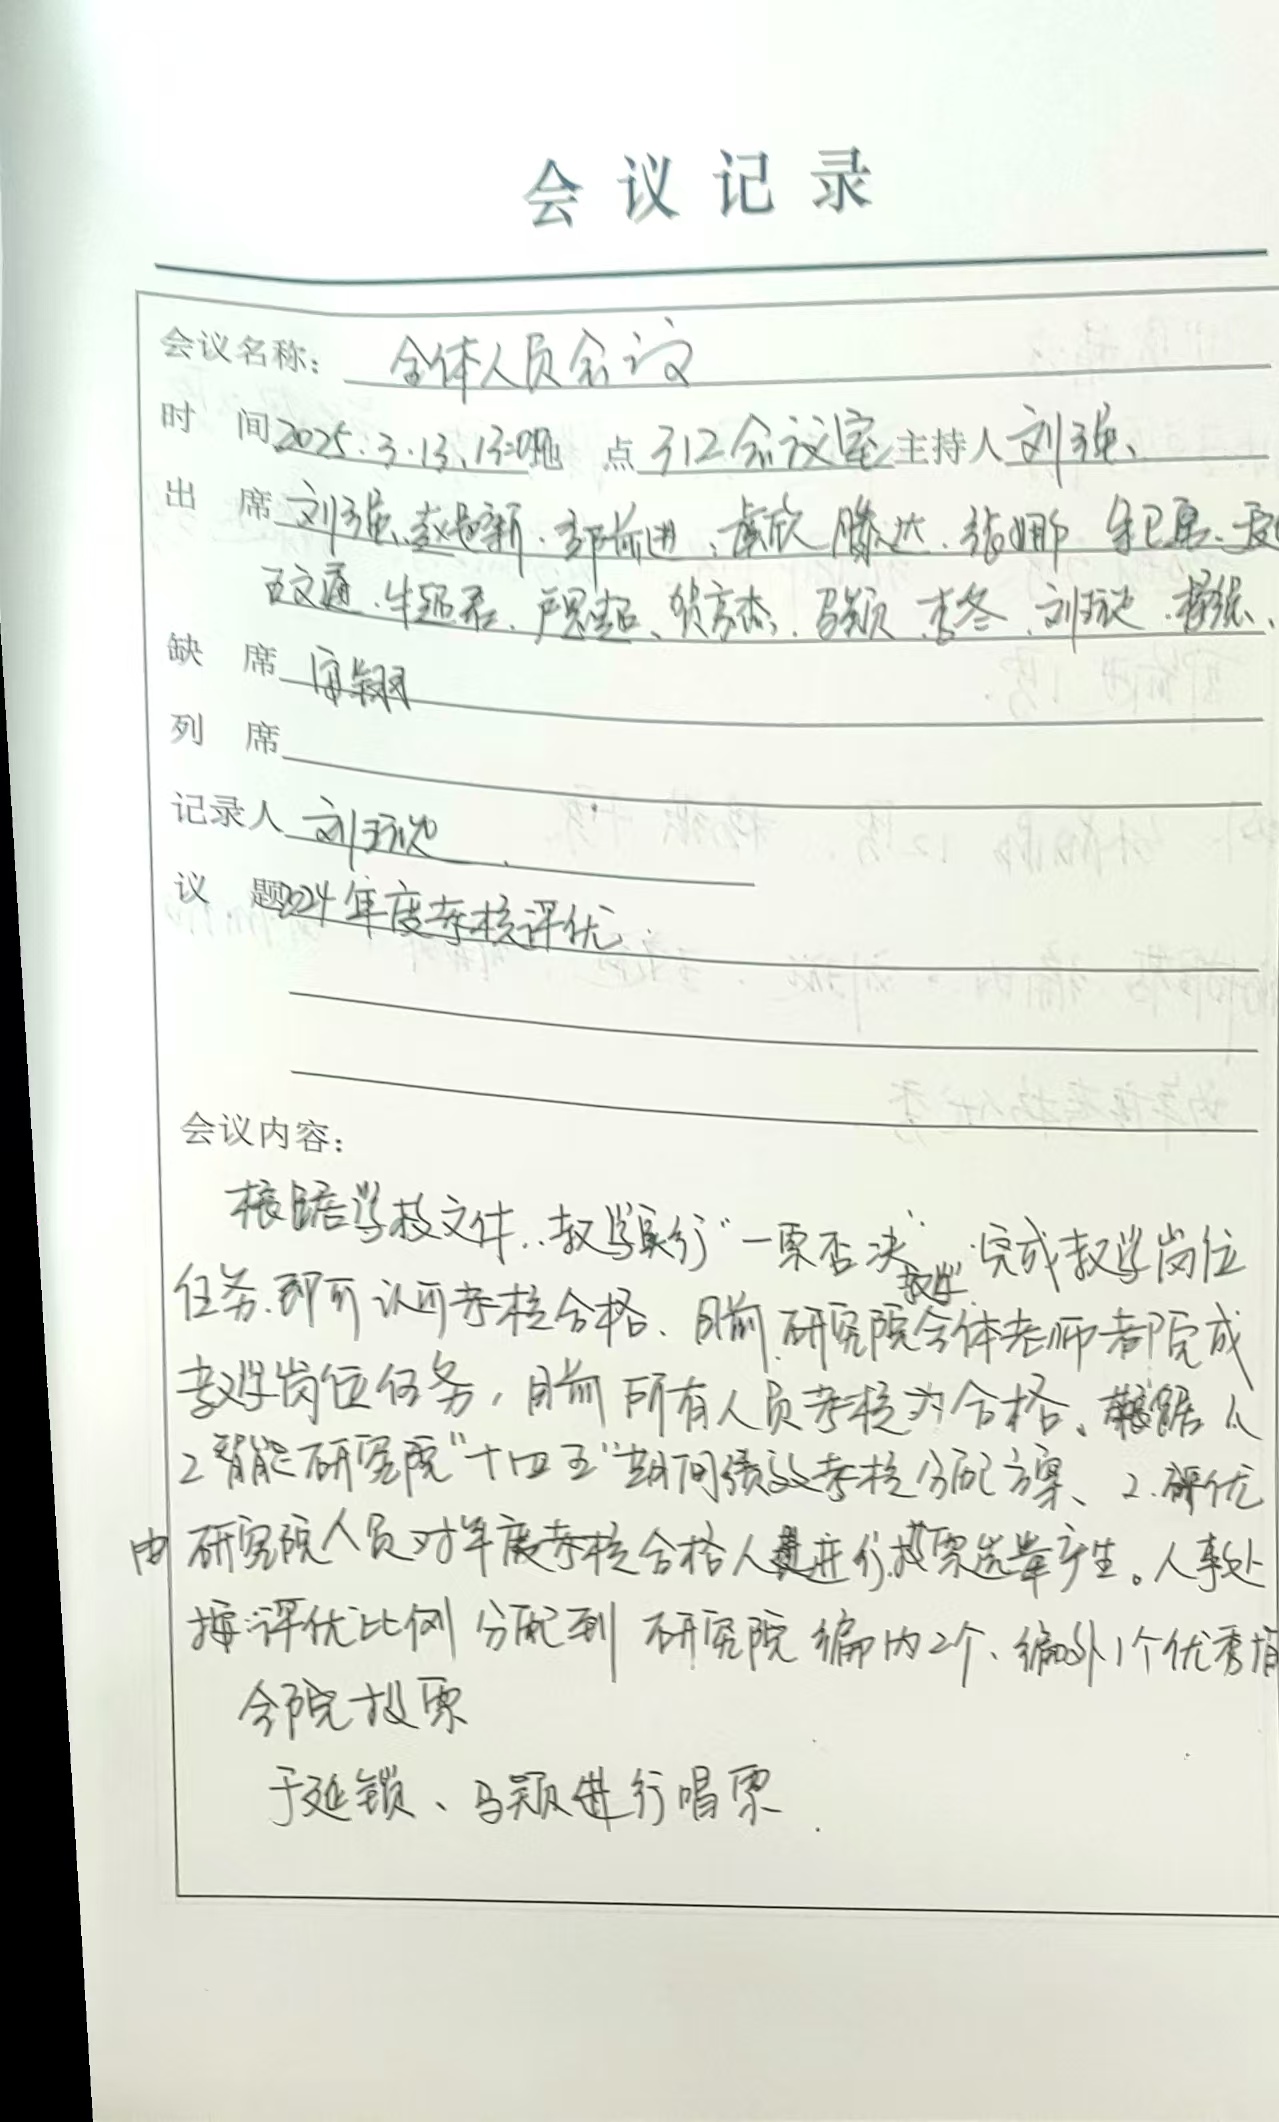 会议记录
会议名称: 全体人员会议
时 间 2025.3.13. 地 点 312会议室 主持人 刘强、
出 席 刘强、赵逢新、郭前进、虞欣 滕达、张娜
王文通、牛超君、严思宇、贺京杰、马颖、李冬、刘斌
缺 席
列 席
记录人 刘
议 题 2024年度考核评优.
会议内容:
根据学校文件,教学实行“一票否决”,完成教学岗位
任务,即可认可教学考核合格、目前研究院全体老师都完成
教学岗位任务,目前所有人员考核为合格。根据 1.
智能研究院“十四五”期间绩效考核分配方案、2.评优
由研究院人员对年度考核合格人员进行投票选举产生。人事处
按评优比例分配到 研究院 编内2个、编外1个优秀
全院投票
于延锁、马颖进行唱票.